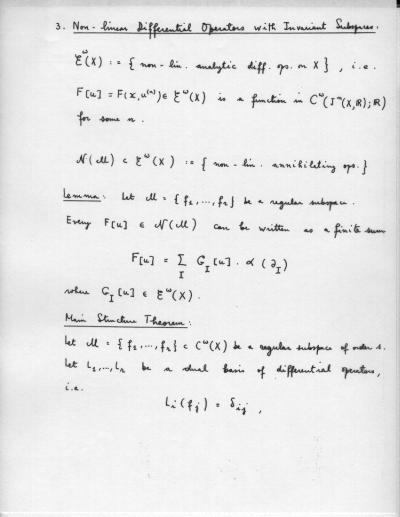 3. Non-linear Differential Operators with Invariant Subspaces.
ℰ^ω(X) := { non-lin. analytic diff. ops. on X } , i.e.
F[u] = F(x, u^(n)) ∈ ℰ^ω(X) is a function in C^ω(J^n(X,ℝ);ℝ)
for some n.
𝒩(ℳ) ⊂ ℰ^ω(X) := { non-lin. annihilating ops. }
Lemma: Let ℳ = { f_1, ..., f_r } be a regular subspace.
Every F[u] ∈ 𝒩(ℳ) can be written as a finite sum
F[u] = Σ_I G_I[u] · α (∂_I)
where G_I[u] ∈ ℰ^ω(X).
Main Structure Theorem:
Let ℳ = { f_1, ..., f_r } ⊂ C^ω(X) be a regular subspace of order s.
Let L_1, ..., L_r be a dual basis of differential operators,
i.e.
L_i(f_j) = δ_ij ,